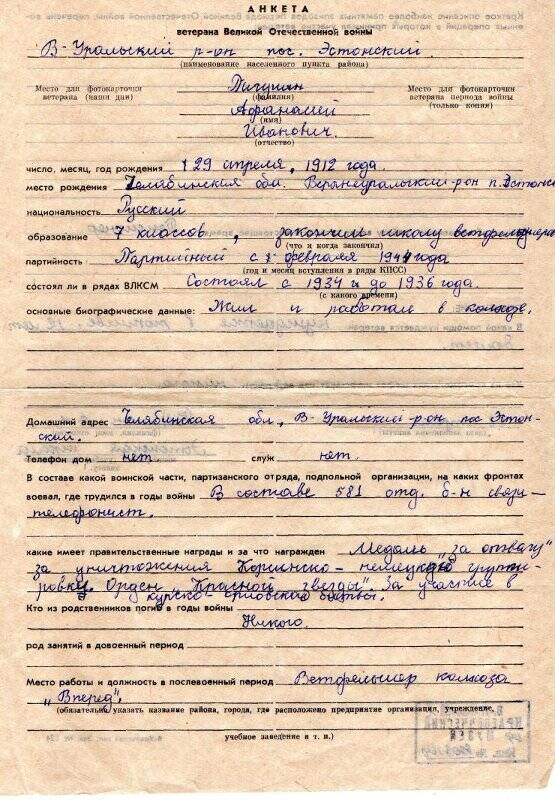 АНКЕТА
ветерана Великой Отечественной войны
В-Уральский р-он пос. Эстонский
(наименование населенного пункта района)
Место для фотокарточки
ветерана (наши дни)
Место для фотокарточки
ветерана периода войны
(только копия)
(фамилия)
(имя)
Иванович.
(отчество)
число, месяц, год рождения 29 апреля, 1912 года.
место рождения Челябинския обл. Верхнеуральский р-он п. Эстонс
национальность Русский
образование 7 классов, закончил школу ветфельдшера
(что и когда закончил)
партийность Партийный с февраля 1944 года
(год и месяц вступления в ряды КПСС)
состоял ли в рядах ВЛКСМ Состоял с 1934 г до 1936 года.
(с какого времени)
основные биографические данные: Жил и работал в колхозе.
Домашний адрес Челябинская обл, В-Уральский р-он пос Эстон-
ский.
Телефон дом нет служ нет.
В составе какой воинской части, партизанского отряда, подпольной организации, на каких фронтах
воевал, где трудился в годы войны В составе 581 отд. б-н связи-
телефонист.
какие имеет правительственные награды и за что награжден Медаль „за отвагу"
за уничтожения немецкую групи-
ровку. Орден „Красной звезды" за участие в
курско-орловской битвы.
Кто из родственников погиб в годы войны
Никого.
род занятий в довоенный период
Место работы и должность в послевоенный период Ветфельшер колхоза
„Вперед".
(обязательно указать название района, города, где расположено предприятие организация, учреждение,
учебное заведение и т. п.)